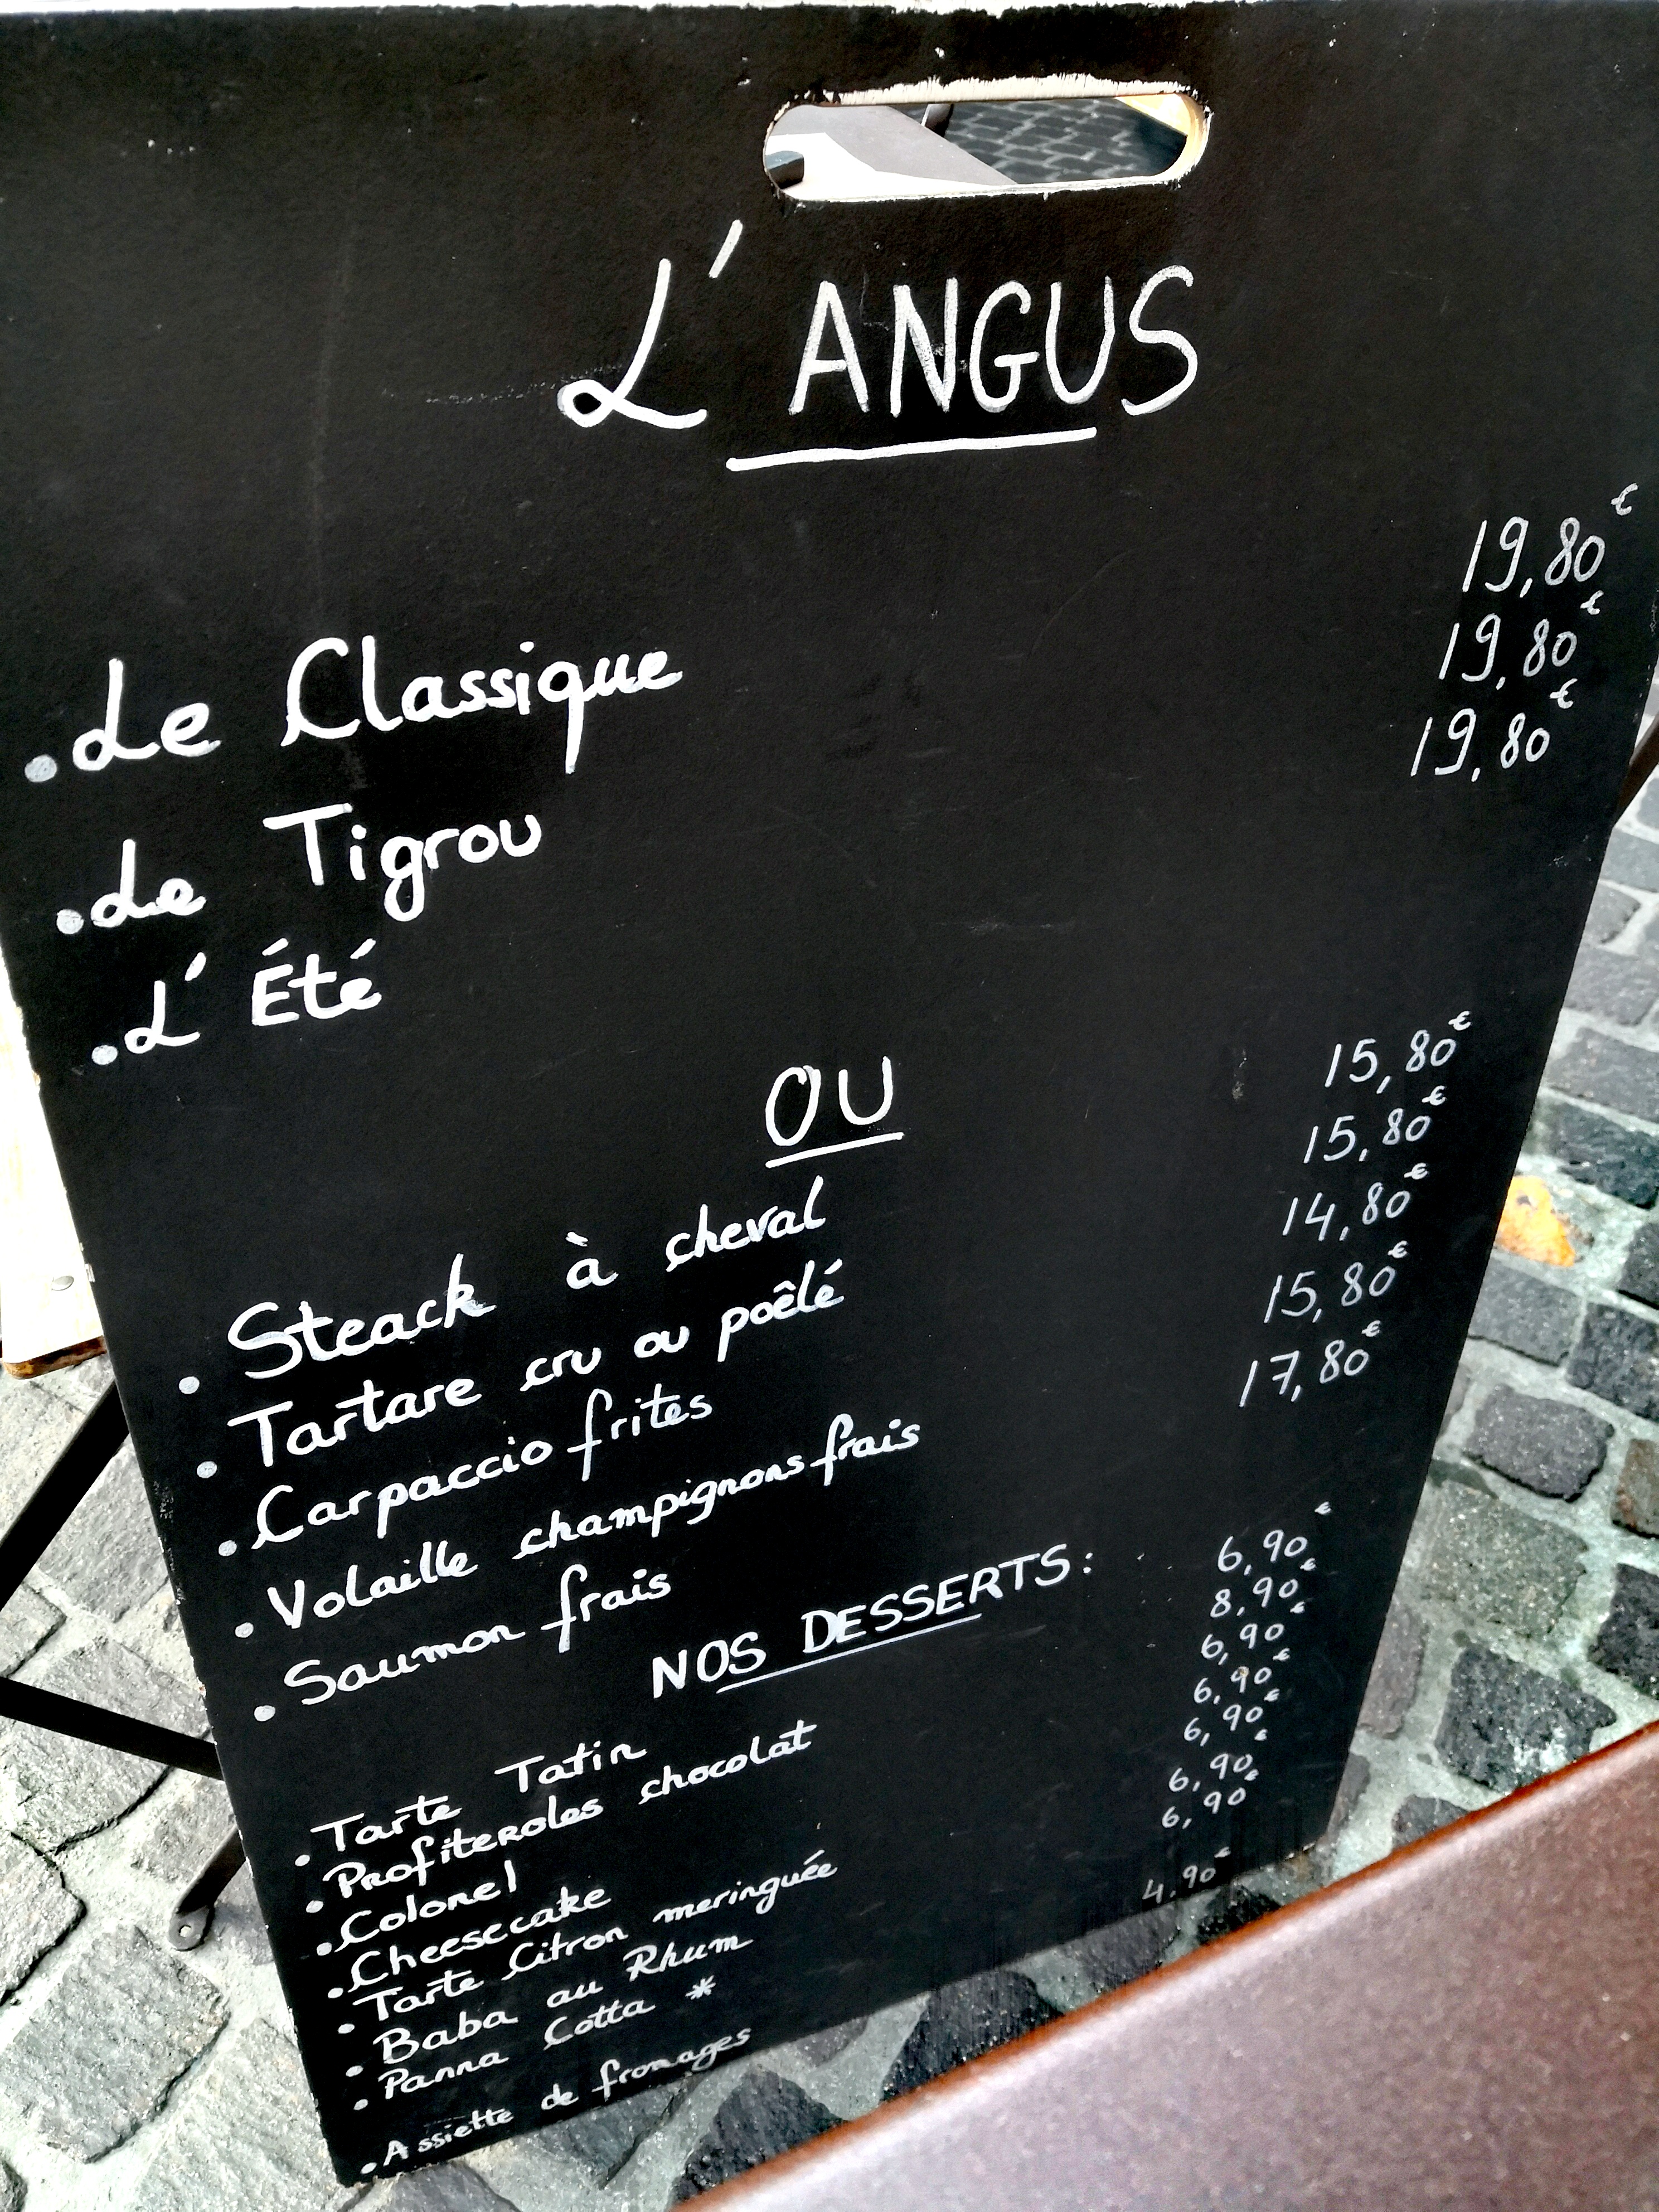 L'ANGUS
. Le Classique 19,80€
. Le Tigrou 19,80€
. L'Été 19,80€
OU
. Steack à cheval 15,80€
. Tartare cru ou poêlé 15,80€
. Carpaccio frites 14,80€
. Volaille champignons frais 15,80€
. Saumon frais 17,80€
NOS DESSERTS:
. Tarte Tatin 6,90€
. Profiteroles chocolat 8,90€
. Colonel 6,90€
. Cheesecake 6,90€
. Tarte Citron meringuée 6,90€
. Baba au Rhum 6,90€
. Panna Cotta * 6,90€
. Assiette de fromages 4.90€